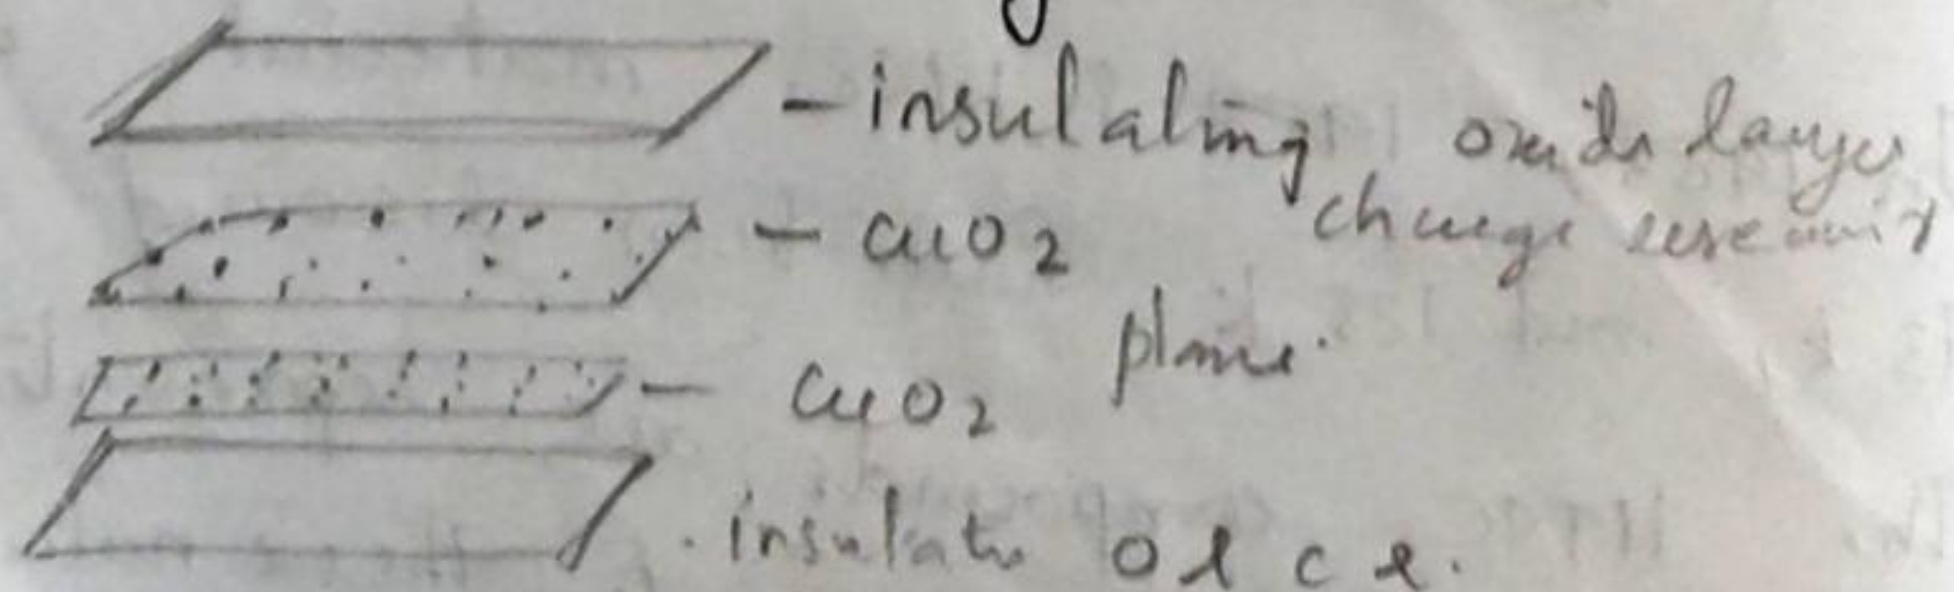 - insulating oxide layer
charge reservoir
- CuO2
plane.
- CuO2
. insulate O l c r.